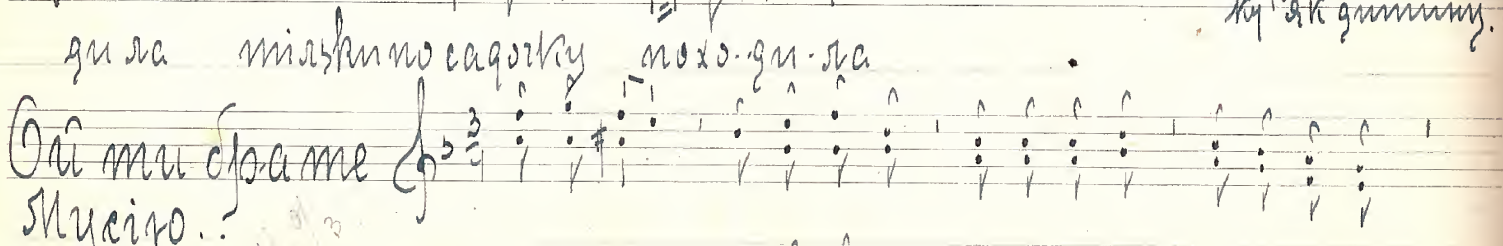 ку як дитину.
дила тільки по садочку похо-ди-ла
Ой ти брате
Мусію..